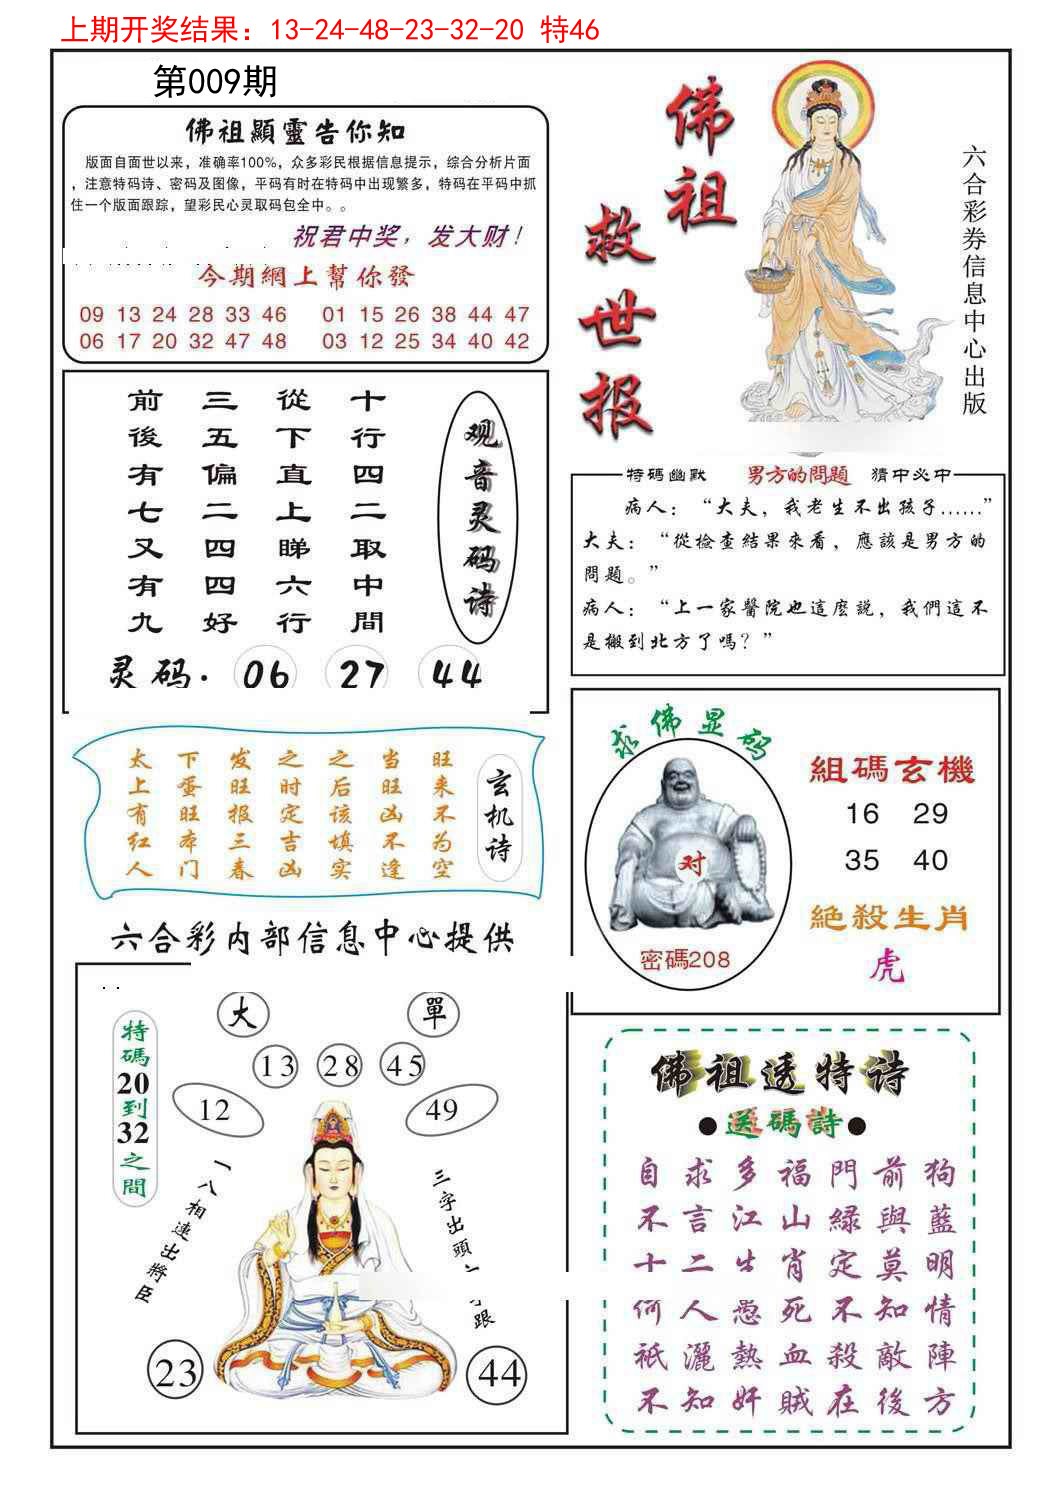 上期开奖结果：13-24-48-23-32-20 特46
第009期
佛祖顯靈告你知
版面自面世以来，准确率100%，众多彩民根据信息提示，综合分析片面
，注意特码诗、密码及图像，平码有时在特码中出现繁多，特码在平码中抓
住一个版面跟踪，望彩民心灵取码包全中。。
祝君中奖，发大财！
今期網上幫你發
09 13 24 28 33 46 01 15 26 38 44 47
06 17 20 32 47 48 03 12 25 34 40 42
佛祖
救世报
六合彩券信息中心出版
观音灵码诗
十行四二取中間
從下直上睇六行
三五偏二四四好
前後有七又有九
灵码. 06 27 44
特碼幽默 男方的問題 猜中必中
病人：“大夫，我老生不出孩子……”
大夫：“從檢查結果來看，應該是男方的
問題。”
病人：“上一家醫院也這麼説，我們這不
是搬到北方了嗎？”
玄机诗
旺来不为空
当旺凶不逢
之后该填实
之时定吉凶
发旺报三春
下蛋旺本门
太上有红人
求佛显码
对
密碼208
組碼玄機
16 29
35 40
絕殺生肖
虎
六合彩内部信息中心提供
特碼20到32之間
大 單
13 28 45
12 49
一八相連出將臣
三字出頭
跟
23 44
佛祖透特诗
●送碼詩●
自求多福門前狗
不言江山綠與藍
十二生肖定莫明
何人愚死不知情
衹灑熱血殺敵陣
不知奸賊在後方